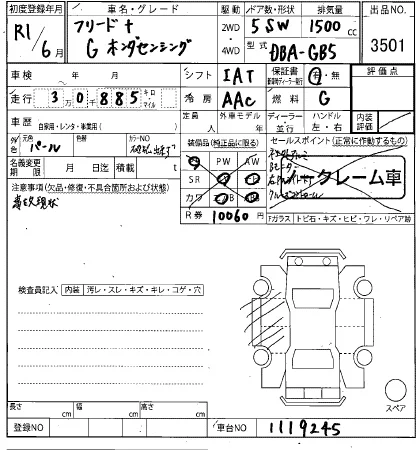 初度登録年月 車名・グレード 駆動 ドア数・形状 排気量 出品NO.
R1/6月 フリード+ 2WD 5 SW 1500 cc
G ホンダセンシング 4WD 型式 DBA-GB5 3501
車検 年 月 シフト IAT 保証書 有・無 評価点
走行 3万0千885 キロ・マイル 冷房 AAC 燃料 G
車歴 自家用・レンタ・事業用( ) 定員 人 外車モデル 年 ディーラー・並行 ハンドル 左・右 内装評価
外色 元色 パール 色替 カラーNO
装備品(純正品に限る) セールスポイント(正常に作動するもの)
PW AW
名義変更期限 月 日迄 積載 t SR
ノークレーム車
注意事項(欠品・修復・不具合箇所および状態) カワ
現状 R券 10060 円
Fガラス トビ石・キズ・ヒビ・ワレ・リペア跡
検査員記入 内装 汚レ・スレ・キズ・キレ・コゲ・穴
スペア
長さ cm 幅 cm 高さ cm
登録NO 車台NO 1119245